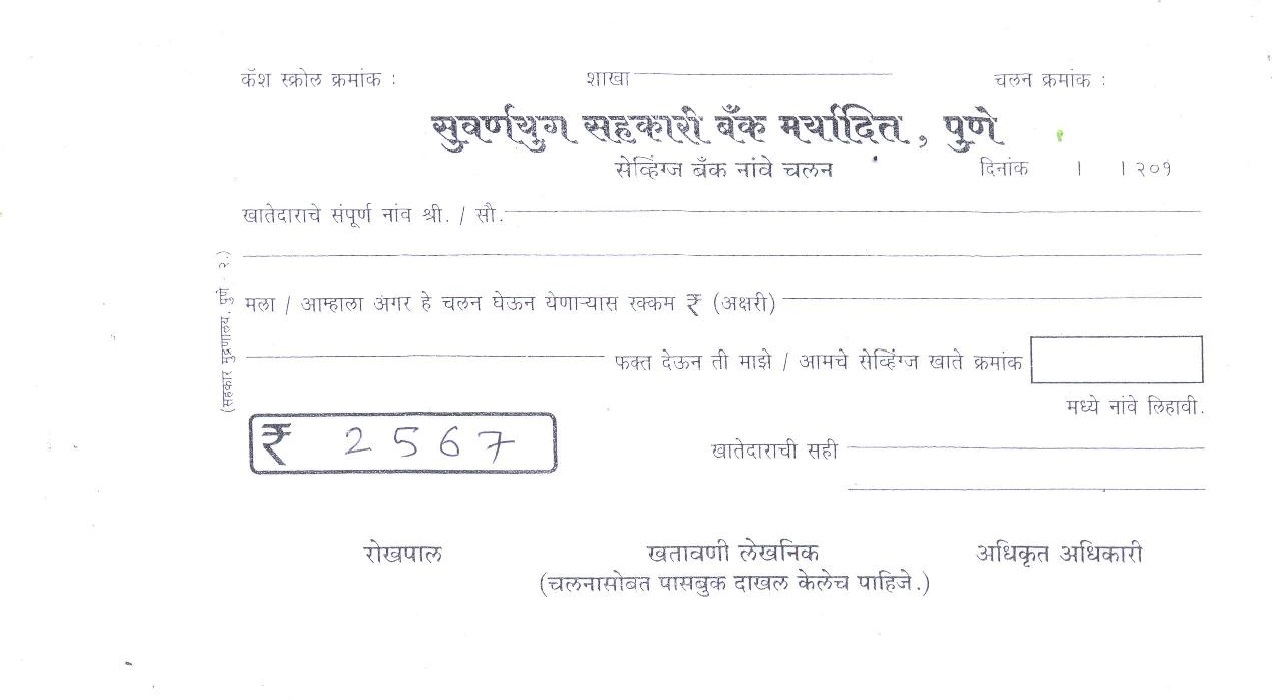 कॅश स्क्रोल क्रमांक : शाखा चलन क्रमांक :
सुवर्णयुग सहकारी बँक मर्यादित, पुणे
सेव्हिंग्ज बँक नांवे चलन दिनांक । । २०१
खातेदाराचे संपूर्ण नांव श्री. / सौ.
मला / आम्हाला अगर हे चलन घेऊन येणाऱ्यास रक्कम ₹ (अक्षरी)
फक्त देऊन ती माझे / आमचे सेव्हिंग्ज खाते क्रमांक
मध्ये नांवे लिहावी.
₹ 2567
खातेदाराची सही
रोखपाल खतावणी लेखनिक अधिकृत अधिकारी
(चलनासोबत पासबुक दाखल केलेच पाहिजे.)
(सहकार मुद्रणालय, पुणे - २.)